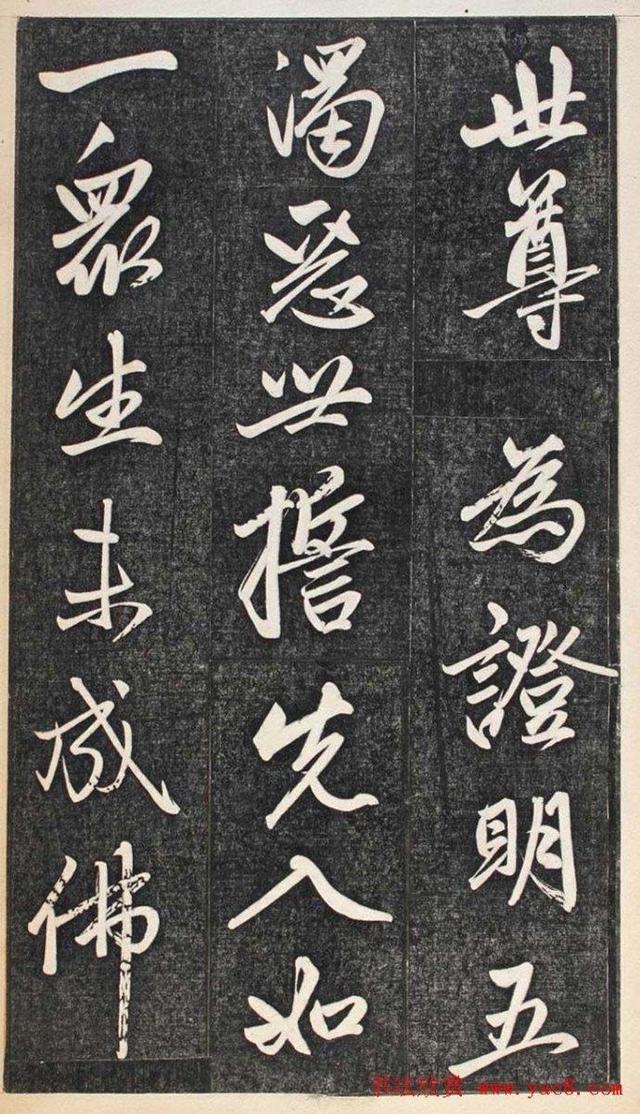 世尊為證明五
濁惡世誓先入如
一眾生未成佛
书法欣赏 www.yac8.com